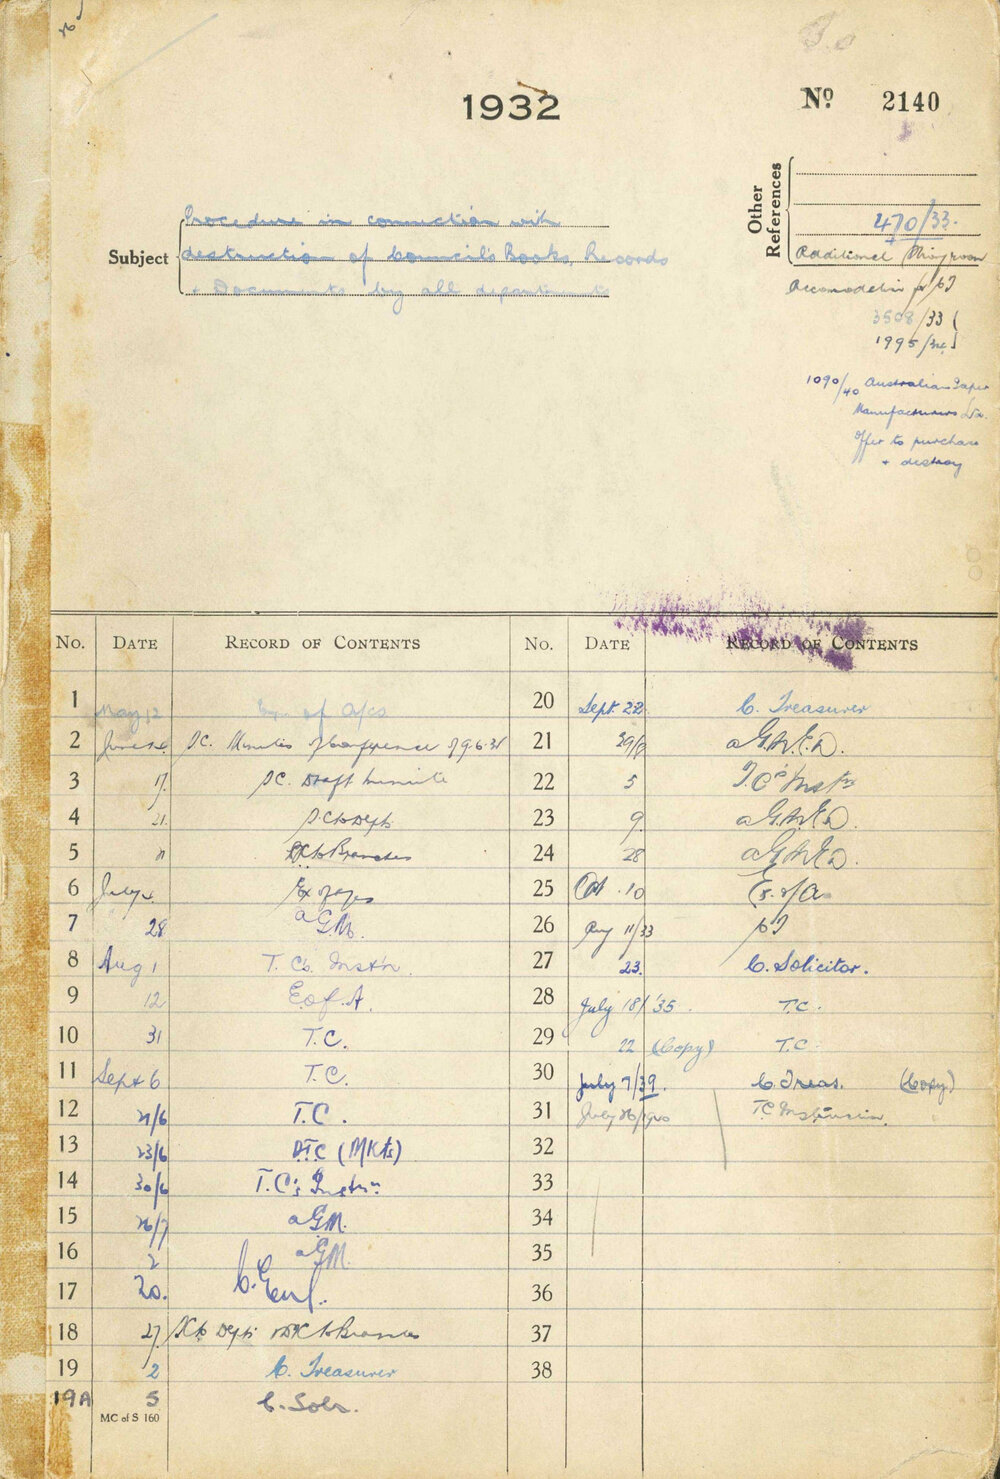 1932
No. 2140
Other References
470/33.
Additional
Accomodation for
3508/33
1995/34
1090/40 Australian Paper
Manufacturers Ltd.
Offer to purchase
+ destroy
Subject
Procedure in connection with
destruction of Council's Books, Records
+ Documents by all departments
No. DATE RECORD OF CONTENTS No. DATE RECORD OF CONTENTS
1 May 12 Ex. of A/cs
2 June T.C. Minutes of Conference of 9.6.31
3 17. T.C. Draft minute
4 21. T.C. to Depts
5 to Branches
6 July
7 28 A.G.M.
8 Aug 1 T.C's. Instn.
9 12 E. of A.
10 31 T.C.
11 Sept 6 T.C.
12 21/6 T.C.
13 23/6 D.T.C (Mkts)
14 30/6 T.C's Instrn.
15 26/7 A.G.M.
16 2 A.G.M.
17 20.
18 27 Depts to Branches
19 2 C. Treasurer
19A 5 C. Solr.
MC of S 160
20 Sept. 22 C. Treasurer
21 29/9
22 5 T.C's Instns
23 9.
24 28
25 Oct. 10 E. of A.
26 Aug 11/33
27 23. C. Solicitor.
28 July 18/'35. T.C.
29 22 (Copy) T.C.
30 July 7/39. C. Treas. (Copy)
31 July 26/40 T.C. Instruction.
32
33
34
35
36
37
38